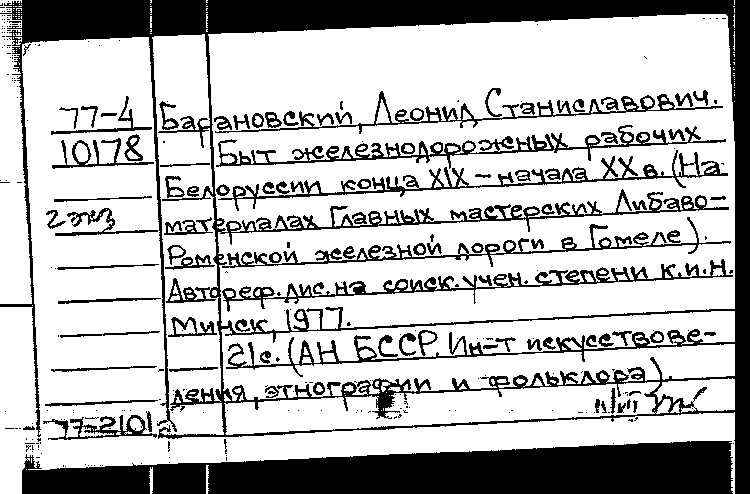 77-4 Барановский, Леонид Станиславович.
10178 Быт железнодорожных рабочих
Белоруссии конца XIX – начала XX в. (На
2 экз материалах Главных мастерских Либаво-
Роменской железной дороги в Гомеле).
Автореф. дис. на соиск. учен. степени к.и.н.
Минск, 1977.
21 с. (АН БССР. Ин-т искусствове-
дения, этнографии и фольклора).
77-2101